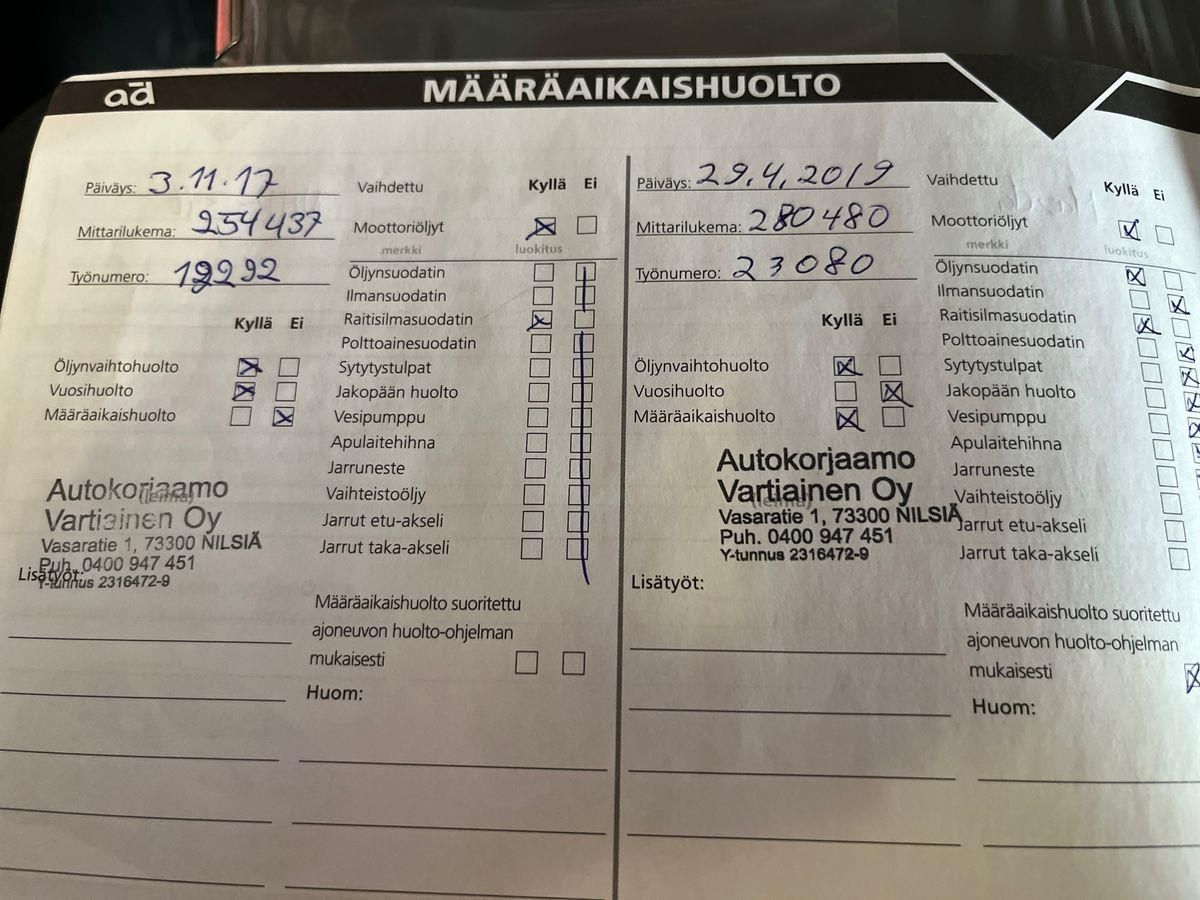 ad
MÄÄRÄAIKAISHUOLTO
Päiväys: 3.11.17
Mittarilukema: 254437
Työnumero: 19292
Kyllä Ei
Öljynvaihtohuolto
Vuosihuolto
Määräaikaishuolto
Autokorjaamo
(leima)
Vartiainen Oy
Vasaratie 1, 73300 NILSIÄ
Puh. 0400 947 451
Y-tunnus 2316472-9
Lisätyöt:
Vaihdettu Kyllä Ei
Moottoriöljyt
merkki luokitus
Öljynsuodatin
Ilmansuodatin
Raitisilmasuodatin
Polttoainesuodatin
Sytytystulpat
Jakopään huolto
Vesipumppu
Apulaitehihna
Jarruneste
Vaihteistoöljy
Jarrut etu-akseli
Jarrut taka-akseli
Määräaikaishuolto suoritettu
ajoneuvon huolto-ohjelman
mukaisesti
Huom:
Päiväys: 29.4.2019
Mittarilukema: 280480
Työnumero: 23080
Kyllä Ei
Öljynvaihtohuolto
Vuosihuolto
Määräaikaishuolto
Autokorjaamo
Vartiainen Oy
(leima)
Vasaratie 1, 73300 NILSIÄ
Puh. 0400 947 451
Y-tunnus 2316472-9
Lisätyöt:
Vaihdettu Kyllä Ei
Moottoriöljyt
merkki luokitus
Öljynsuodatin
Ilmansuodatin
Raitisilmasuodatin
Polttoainesuodatin
Sytytystulpat
Jakopään huolto
Vesipumppu
Apulaitehihna
Jarruneste
Vaihteistoöljy
Jarrut etu-akseli
Jarrut taka-akseli
Määräaikaishuolto suoritettu
ajoneuvon huolto-ohjelman
mukaisesti
Huom: